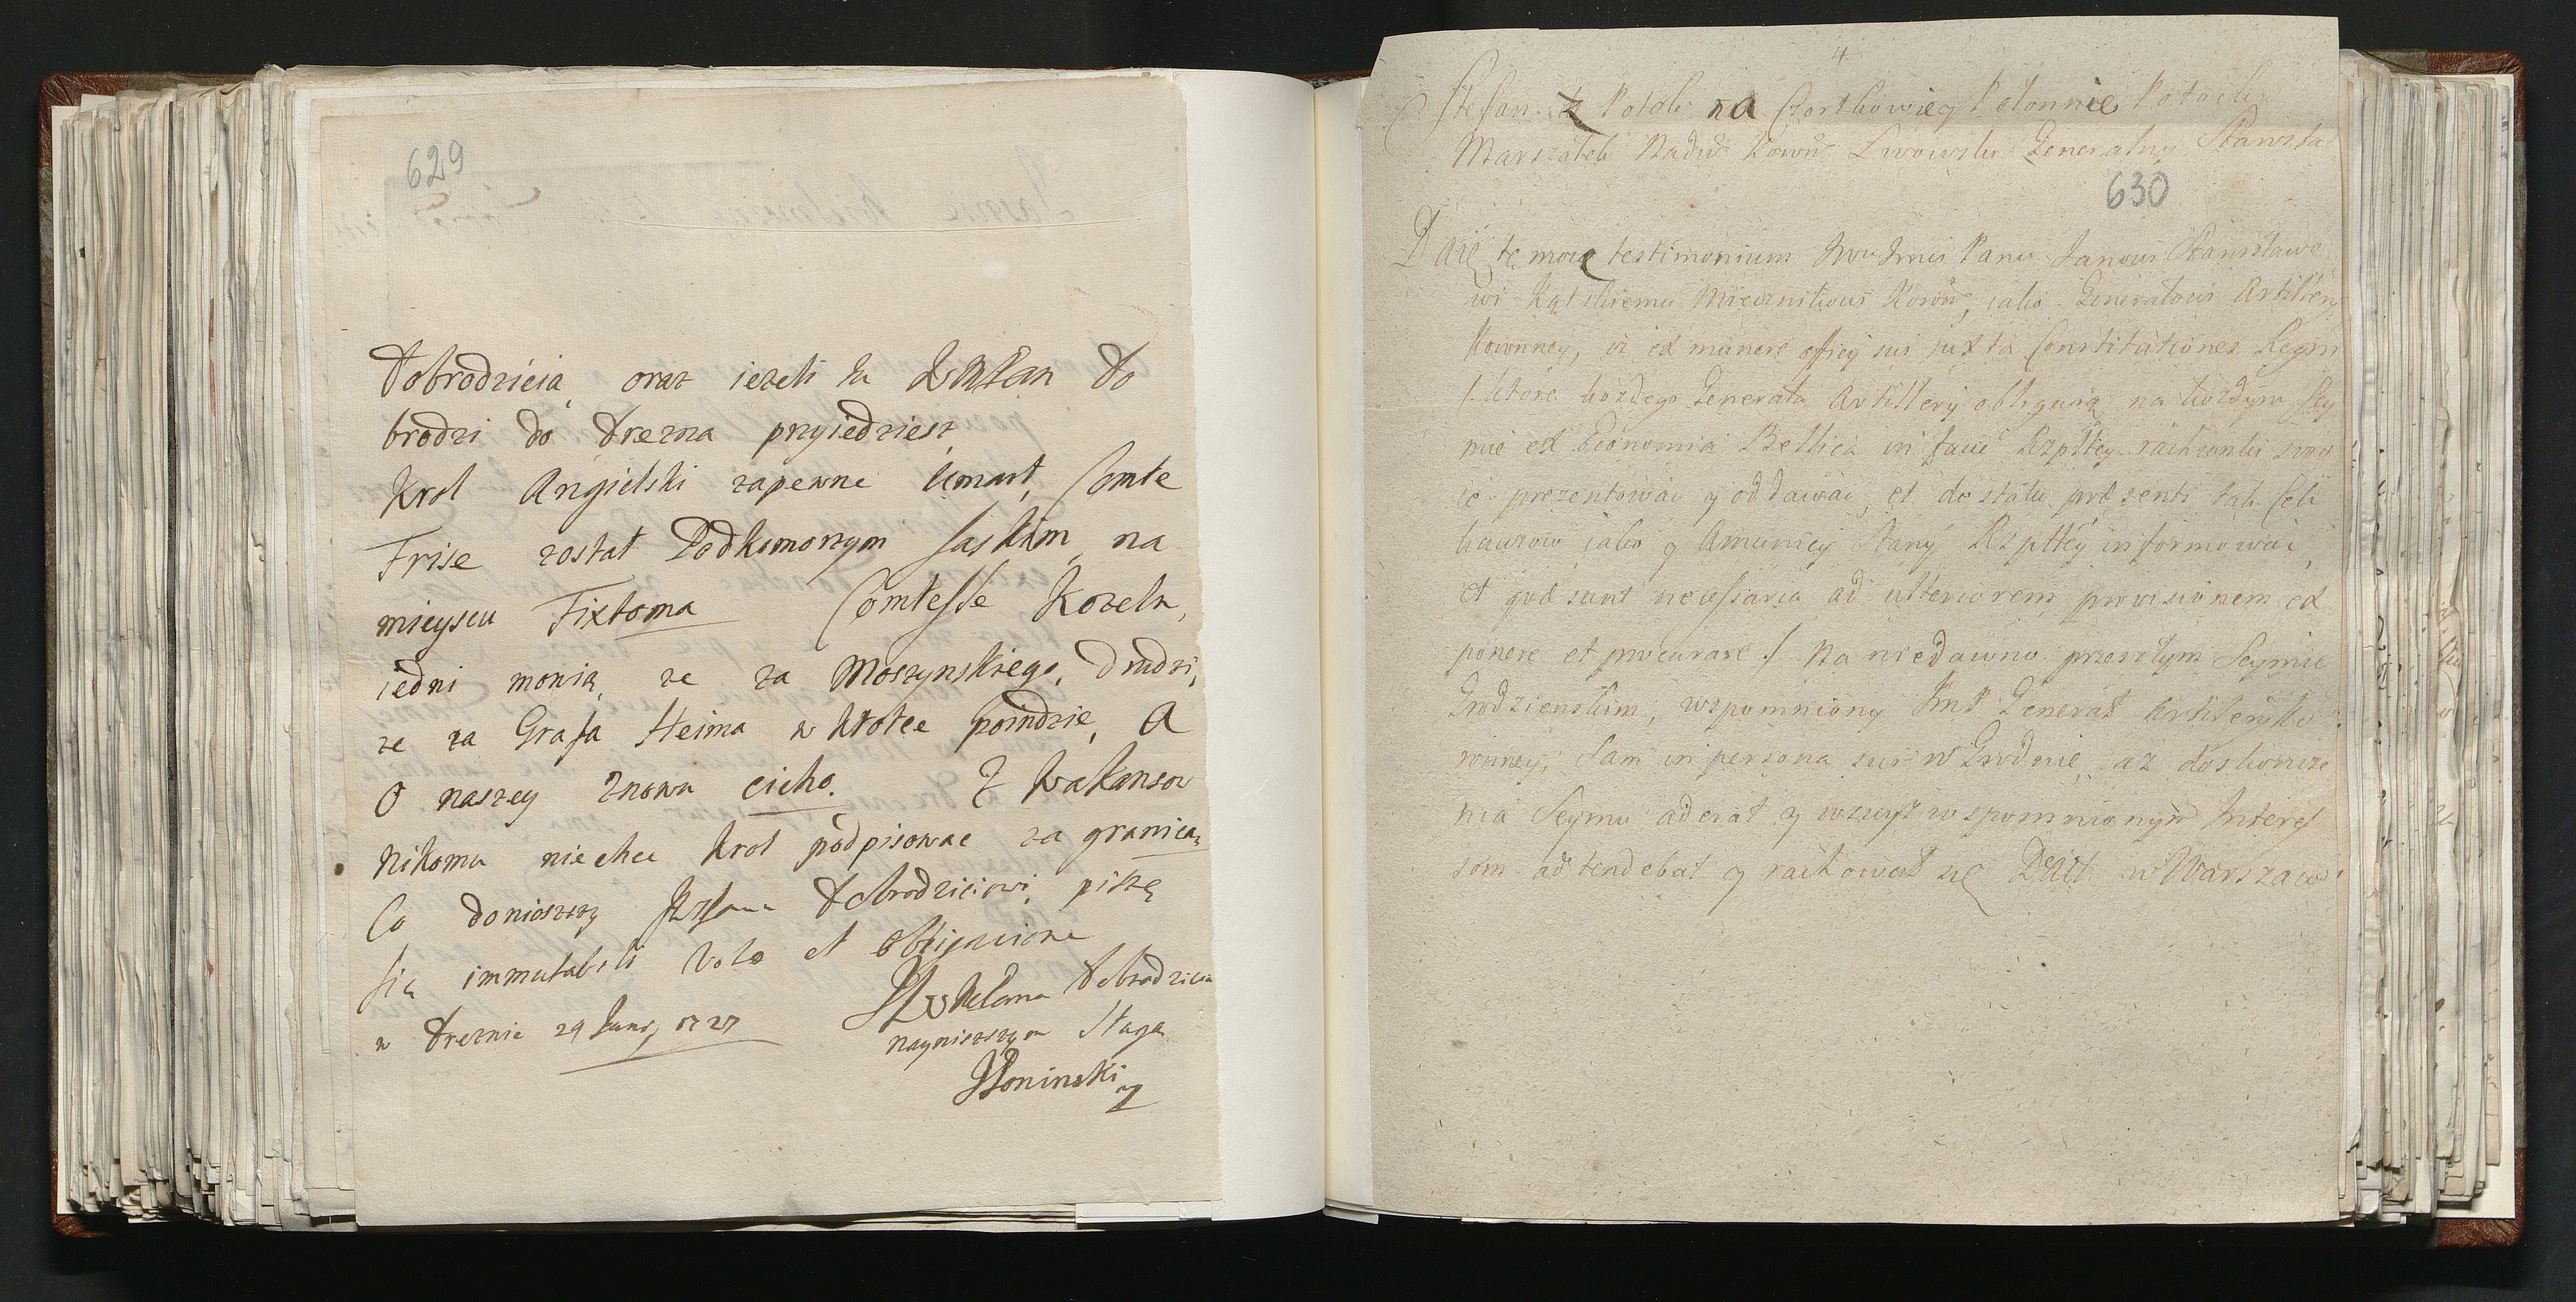 629
Dobrodzieia, oraz iezeli tu WMPan Do
brodzi do Drezna przyiedziesz
Krol Angielski zapewne umarł, Comte
Frise został Podkomorzym Saskim, na
mieyscu Fixtoma Comtesse Kozeln,
iedni monią, ze za Moszynskiego, Drudzi,
ze za Grafa Heima w krotce poindzie, A
O naszey znowu cicho. Z Wakansow
Nikomu niechce Krol podpisowac za granicą,
Co doniozszy Dobrodzieiowi, piszę
się immutabili Voto et obligacione
Dobrodzieia
w Dreznie 29 Junij 1727
nayniszszym Sługą
JPoninski
4
Stefan z Potoka na Czortkowie y Potok
Marszałek Nadw Koron Lwowski Generalny Starosta
630
Daię tę moię testimonium Panu Janowi Stanisławo
wi Kątskiemu Miecznikowi Koron, iako Generałowi Artillery
Koronney, isz ex munere officy sui juxta Constitutiones Regni
/. ktore kozdego Generała Artillery obliguią na kozdym Sey
mie ex Economia Bellica in facie Rzpltey rachunki swo
ie prezentować y oddawac, et de statu præsenti tak Cek
hauzow, iako y Amunicy Stany Rzpltey informować,
et quæ sunt necessaria ad ulteriorem provisionem ex
ponere et procurare ./ Na niedawno przeszłym Seymie
Grodzienskim, wzpomniony Jmć Generał Artilery Ko
ronney, Sam in persona sua w Grodnie, az do skoncze
nia Seymu aderat y wzwysz wspomnionym Interes
som adtendebat y rachował się Datt w Warszawie